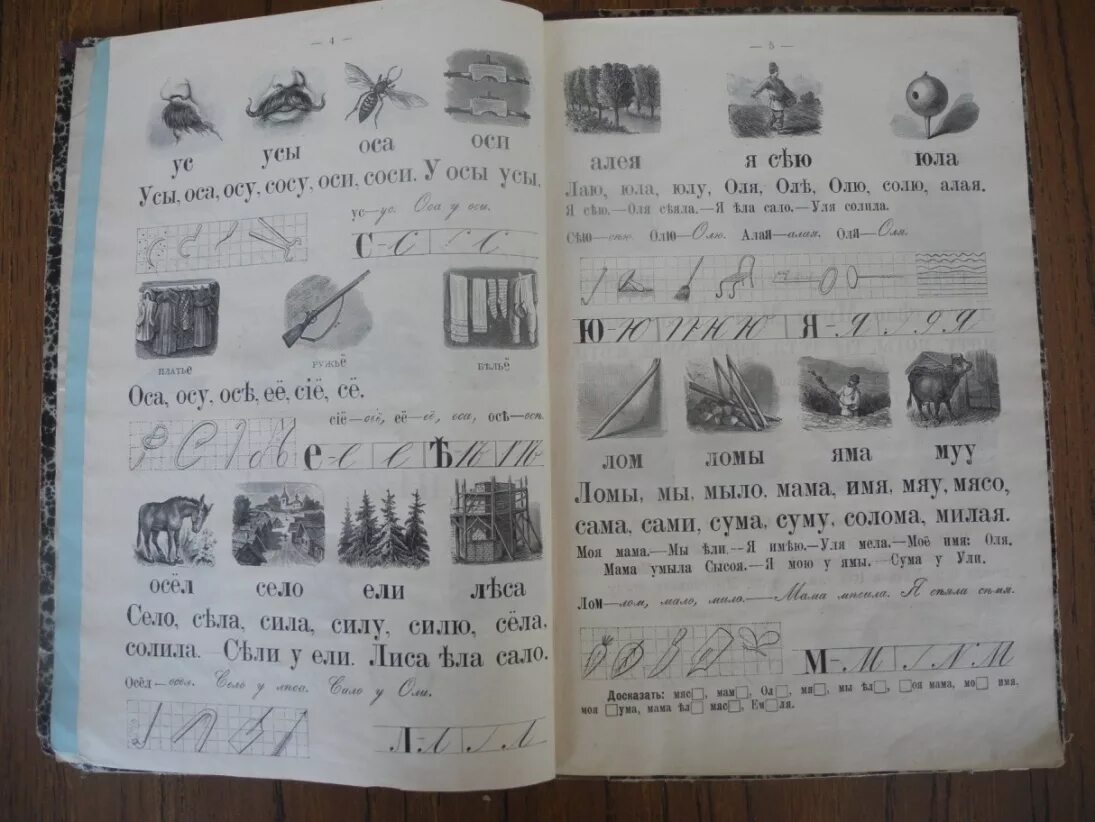 — 4 —
ус усы оса оси
Усы, оса, осу, сосу, оси, соси. У осы усы.
ус—ус. Оса у оси.
С-С С
платье ружьё бѣльё
Оса, осу, осѣ, её, сіё, сё.
сіё—сіё, её—её, оса, осѣ—осѣ.
е-е е Ѣ
осёл село ели лѣса
Село, сѣла, сила, силу, силю, сёла,
солила. Сѣли у ели. Лиса ѣла сало.
Осёл—осёл. Село у лѣса. Сало у Оли.
Л-Л Л
— 5 —
алея я сѣю юла
Лаю, юла, юлу, Оля, Олѣ, Олю, солю, алая.
Я сѣю.—Оля сѣяла.—Я ѣла сало.—Уля солила.
Сѣю—сѣю. Олю—Олю. Алая—алая. Оля—Оля.
Ю-Ю Ю Я-Я Я
лом ломы яма муу
Ломы, мы, мыло, мама, имя, мяу, мясо,
сама, сами, сума, суму, солома, милая.
Моя мама.—Мы ѣли.—Я имѣю.—Уля мела.—Моё имя: Оля.
Мама умыла Сысоя.—Я мою у ямы.—Сума у Ули.
Лом—лом, мало, мило.—Мама мѣсила. Я спяла
М-М М
Досказать: мяс□, мам□, Ол□, мя□, мы ѣл□, □оя мама, мо□ имя,
моя □ума, мама ѣл□ мас□, Ем□ля.